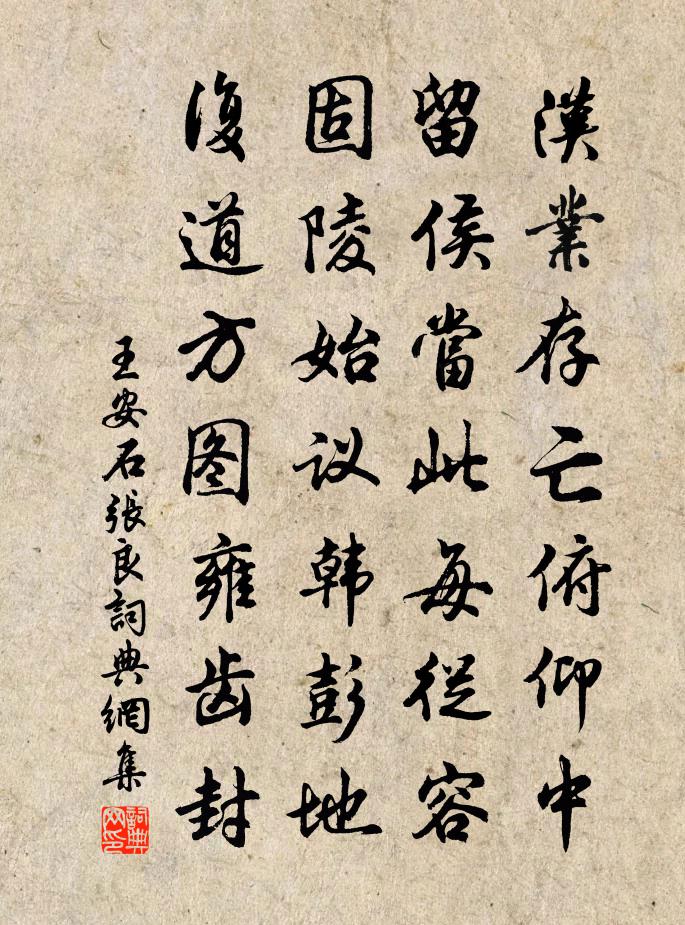 漢業存亡俯仰中
留侯當此每從容
固陵始议韩彭地
復道方图雍齿封
王安石張良詞典網集
詞典
网印